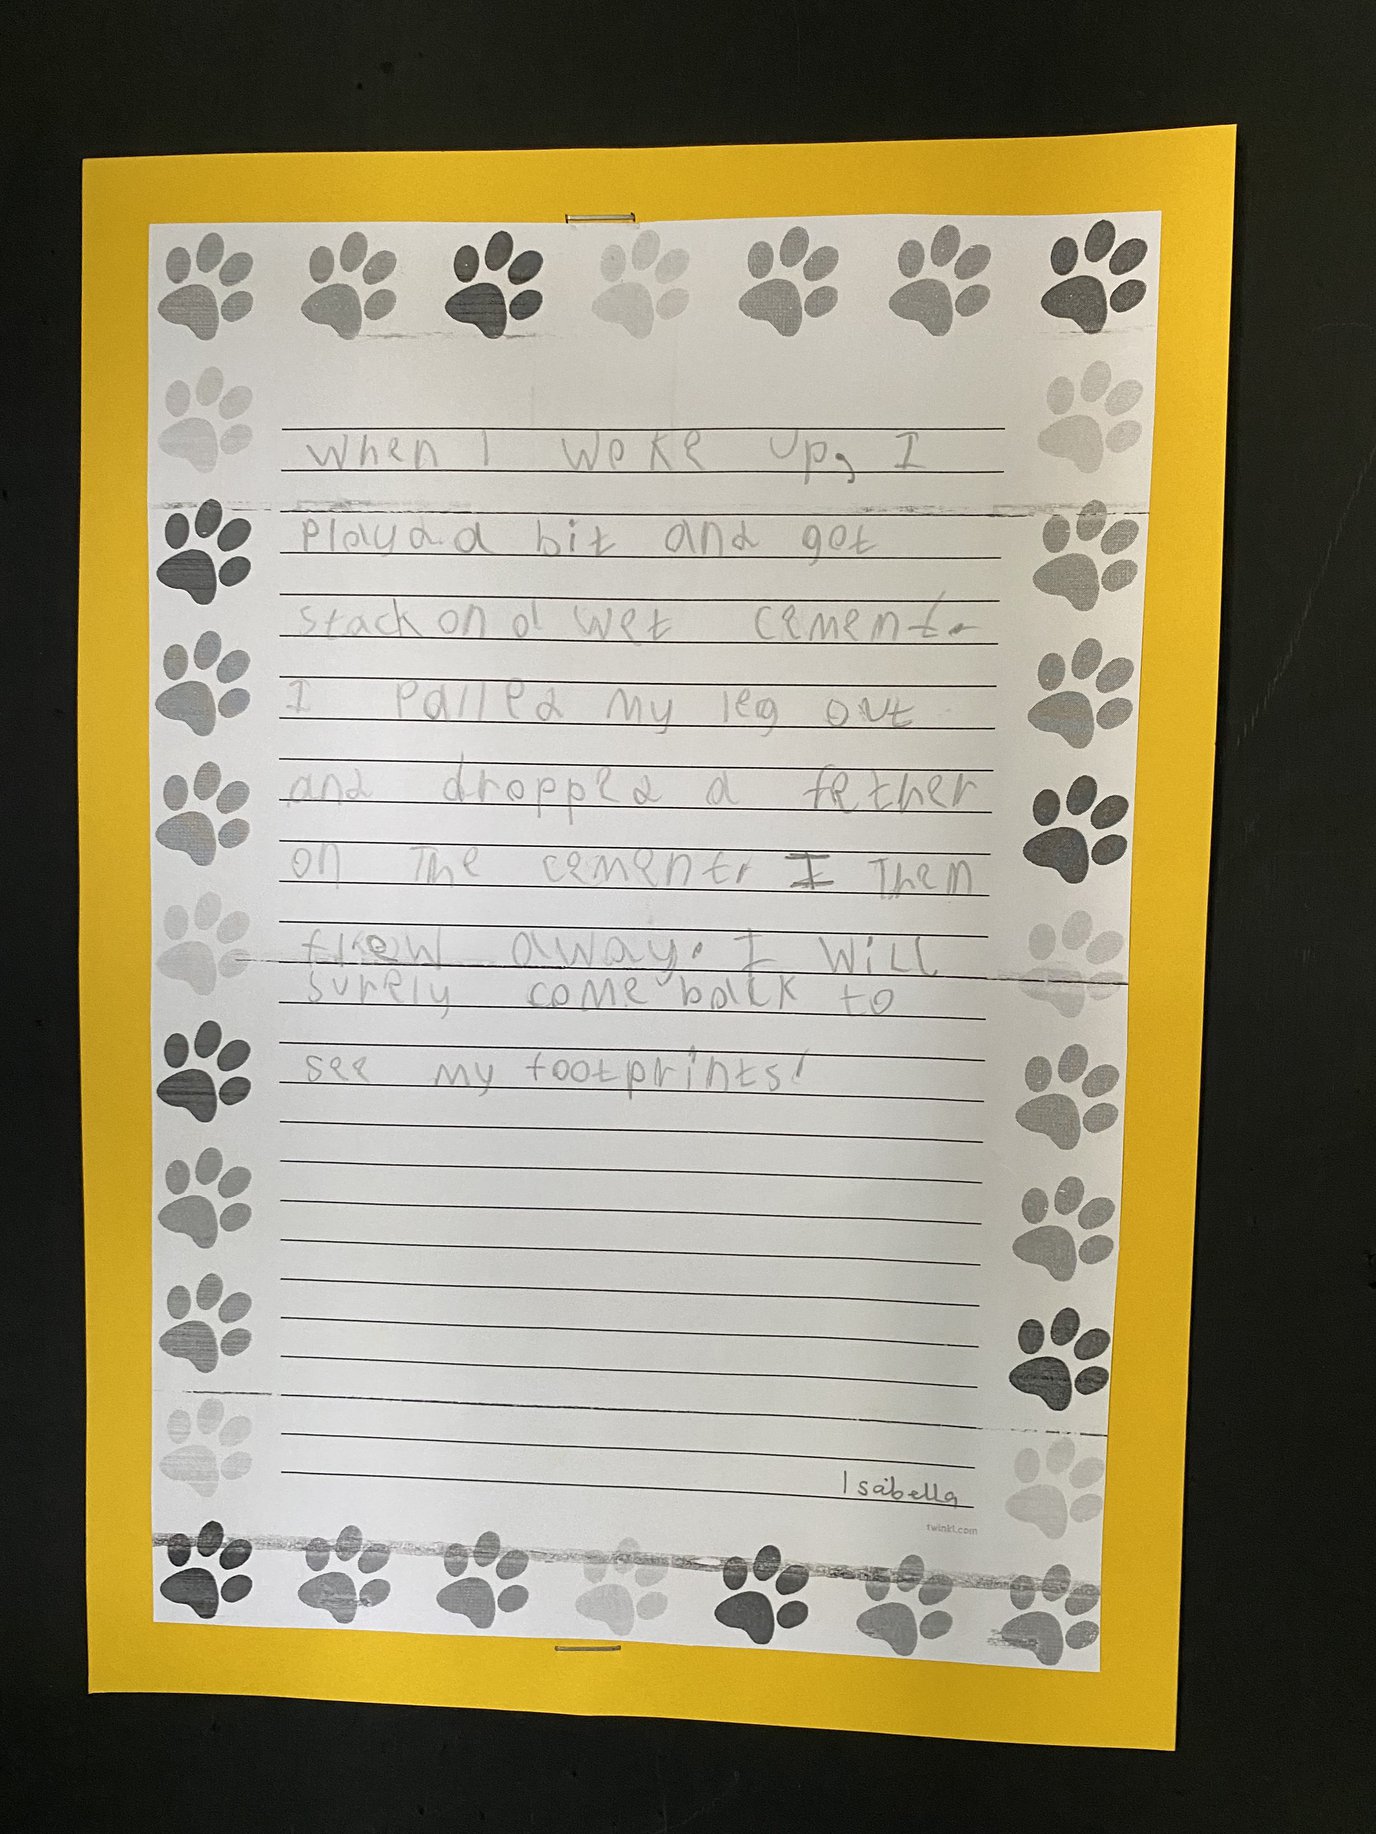 when I woke up, I
playd a bit and got
stack on a wet cement.
I palled my leg out
and dropped a fether
on The cement. I Then
flew away. I will
surely come back to
see my footprints!
Isabella
twinkl.com